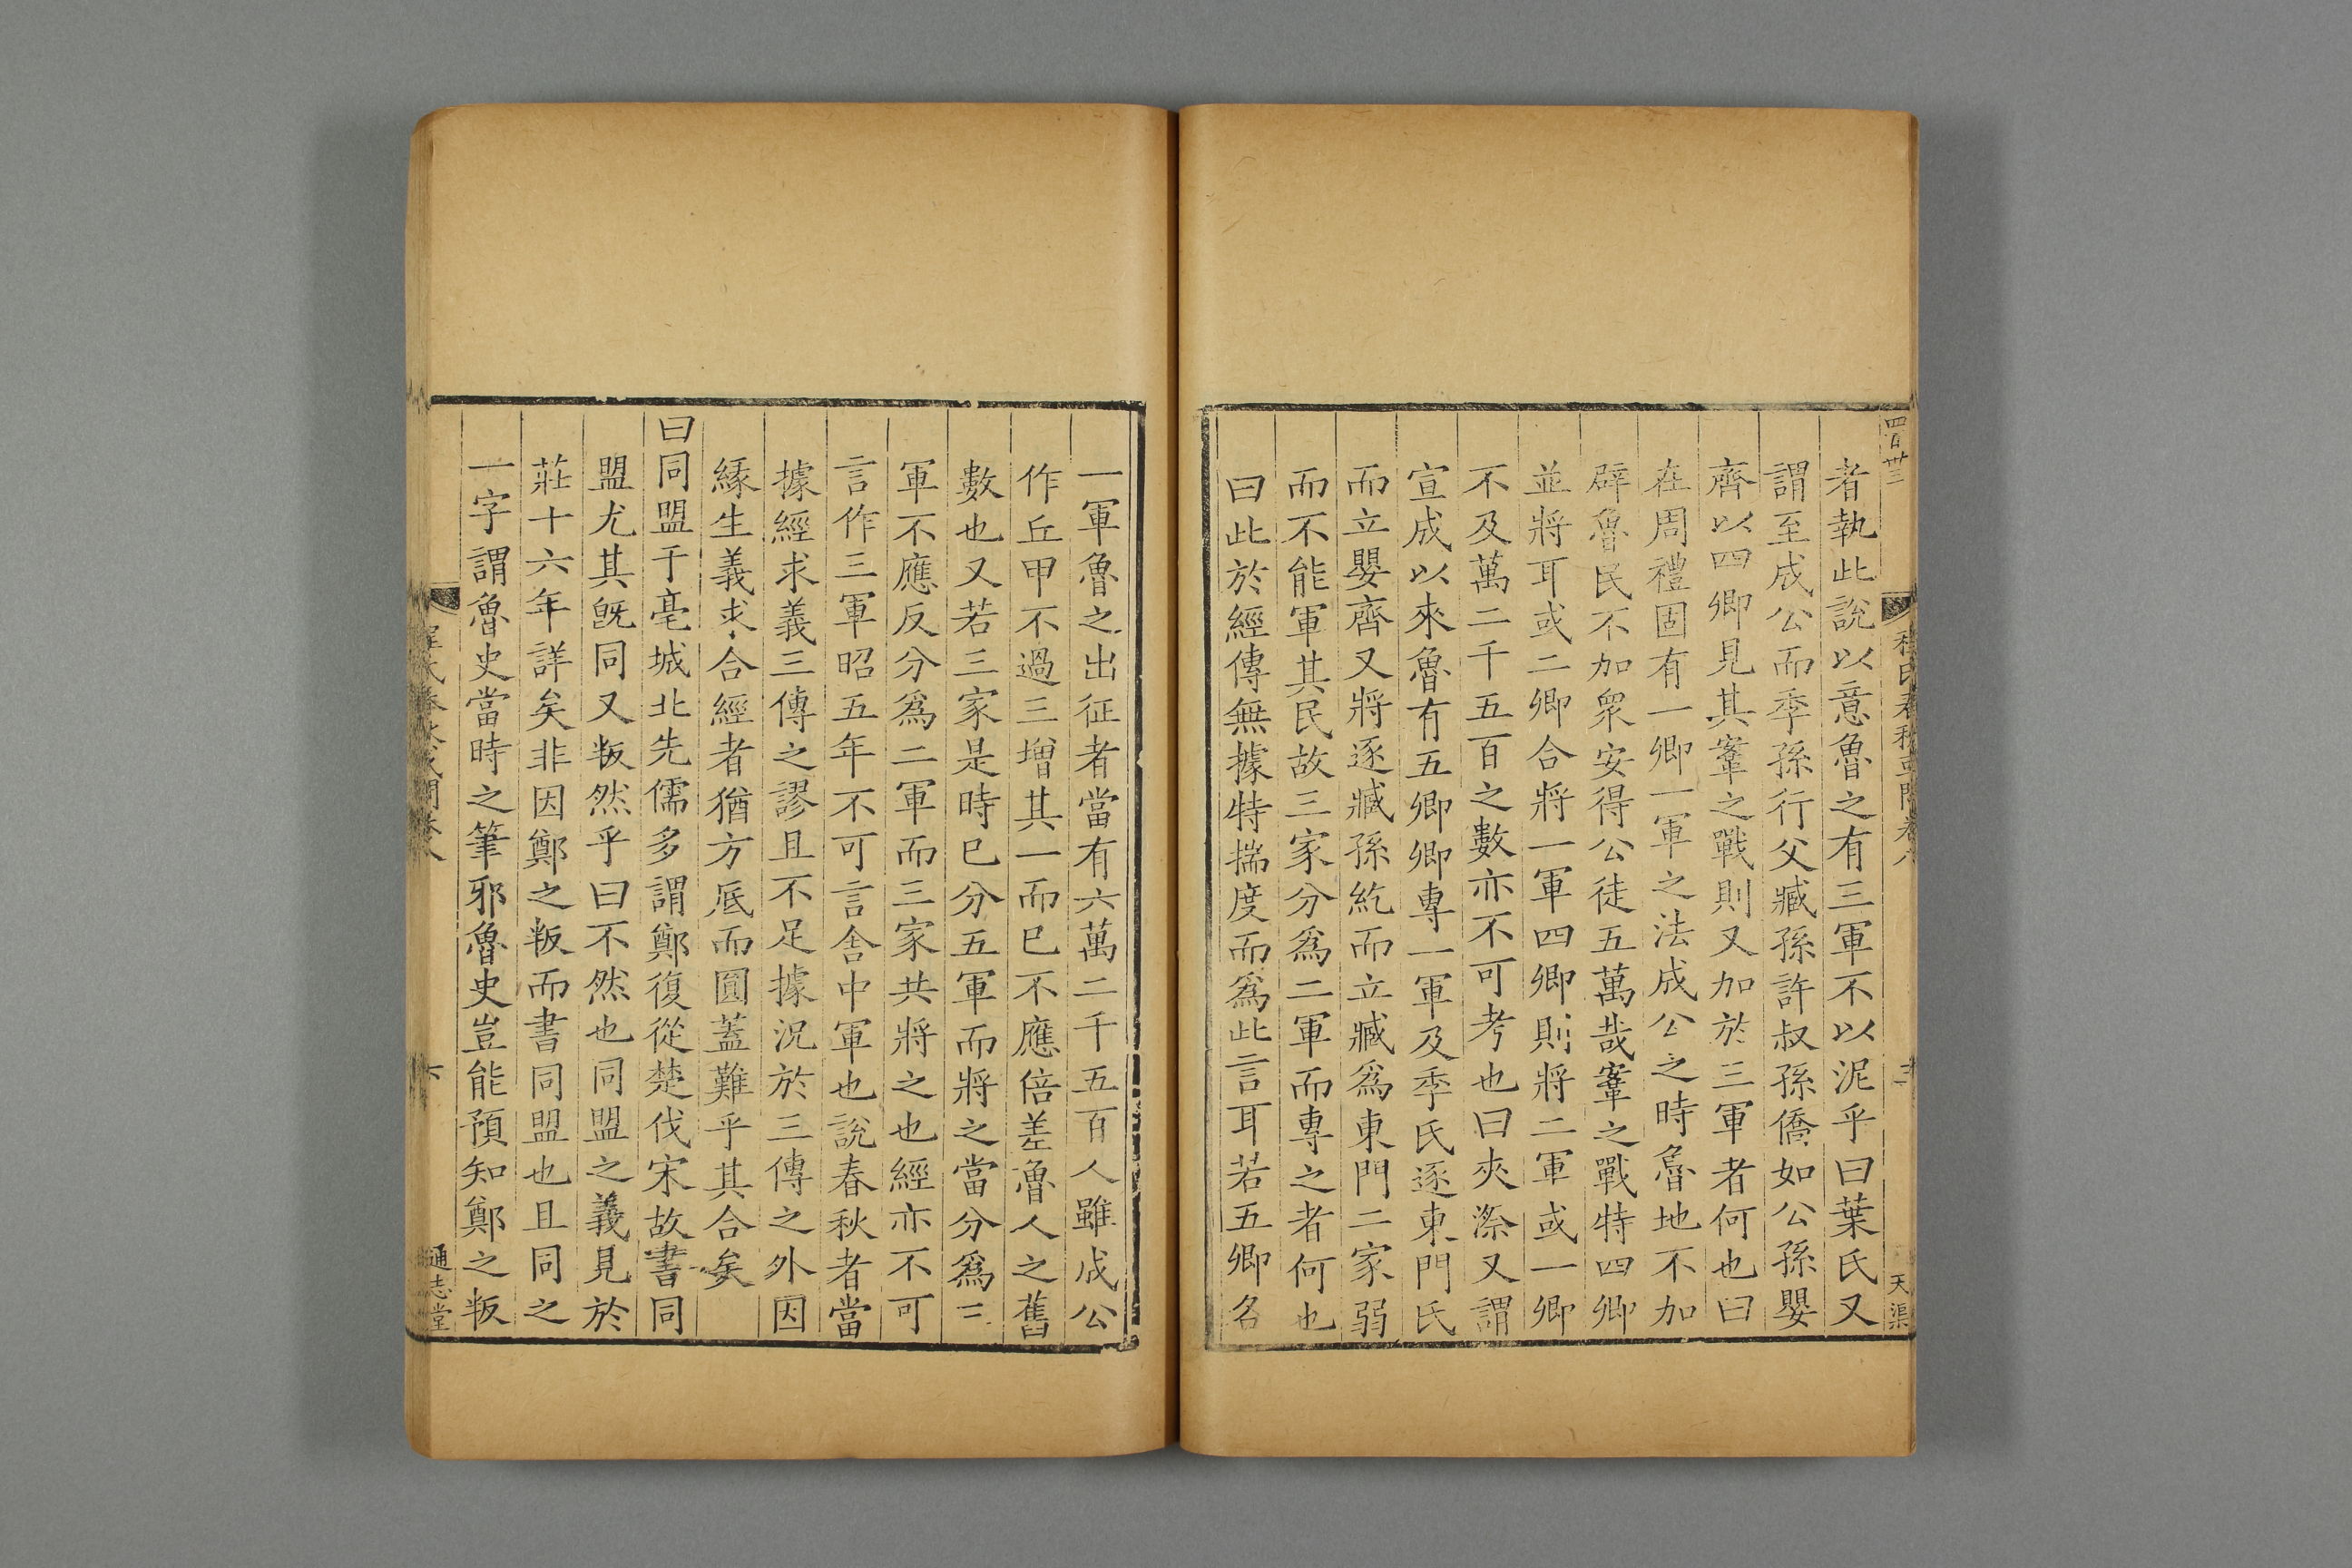 四百卅三
程氏春秋或問卷八
天渠
者執此說以意魯之有三軍不以泥乎曰葉氏又
謂至成公而季孫行父臧孫許叔孫僑如公孫嬰
齊以四卿見其鞌之戰則又加於三軍者何也曰
在周禮固有一卿一軍之法成公之時魯地不加
辟魯民不加衆安得公徒五萬哉鞌之戰特四卿
並將耳或二卿合將一軍四卿則將二軍或一卿
不及萬二千五百之數亦不可考也曰夾漈又謂
宣成以來魯有五卿卿專一軍及季氏逐東門氏
而立嬰齊又將逐臧孫紇而立臧爲東門二家弱
而不能軍其民故三家分爲二軍而專之者何也
曰此於經傳無據特揣度而爲此言耳若五卿名
一軍魯之出征者當有六萬二千五百人雖成公
作丘甲不過三增其一而已不應倍差魯人之舊
數也又若三家是時已分五軍而將之當分爲三
軍不應反分爲二軍而三家共將之也經亦不可
言作三軍昭五年不可言舍中軍也說春秋者當
據經求義三傳之謬且不足據況於三傳之外因
緣生義求合經者猶方底而圓蓋難乎其合矣
曰同盟于亳城北先儒多謂鄭復從楚伐宋故書同
盟尤其旣同又叛然乎曰不然也同盟之義見於
莊十六年詳矣非因鄭之叛而書同盟也且同之
一字謂魯史當時之筆邪魯史豈能預知鄭之叛
程氏春秋或問卷八
通志堂